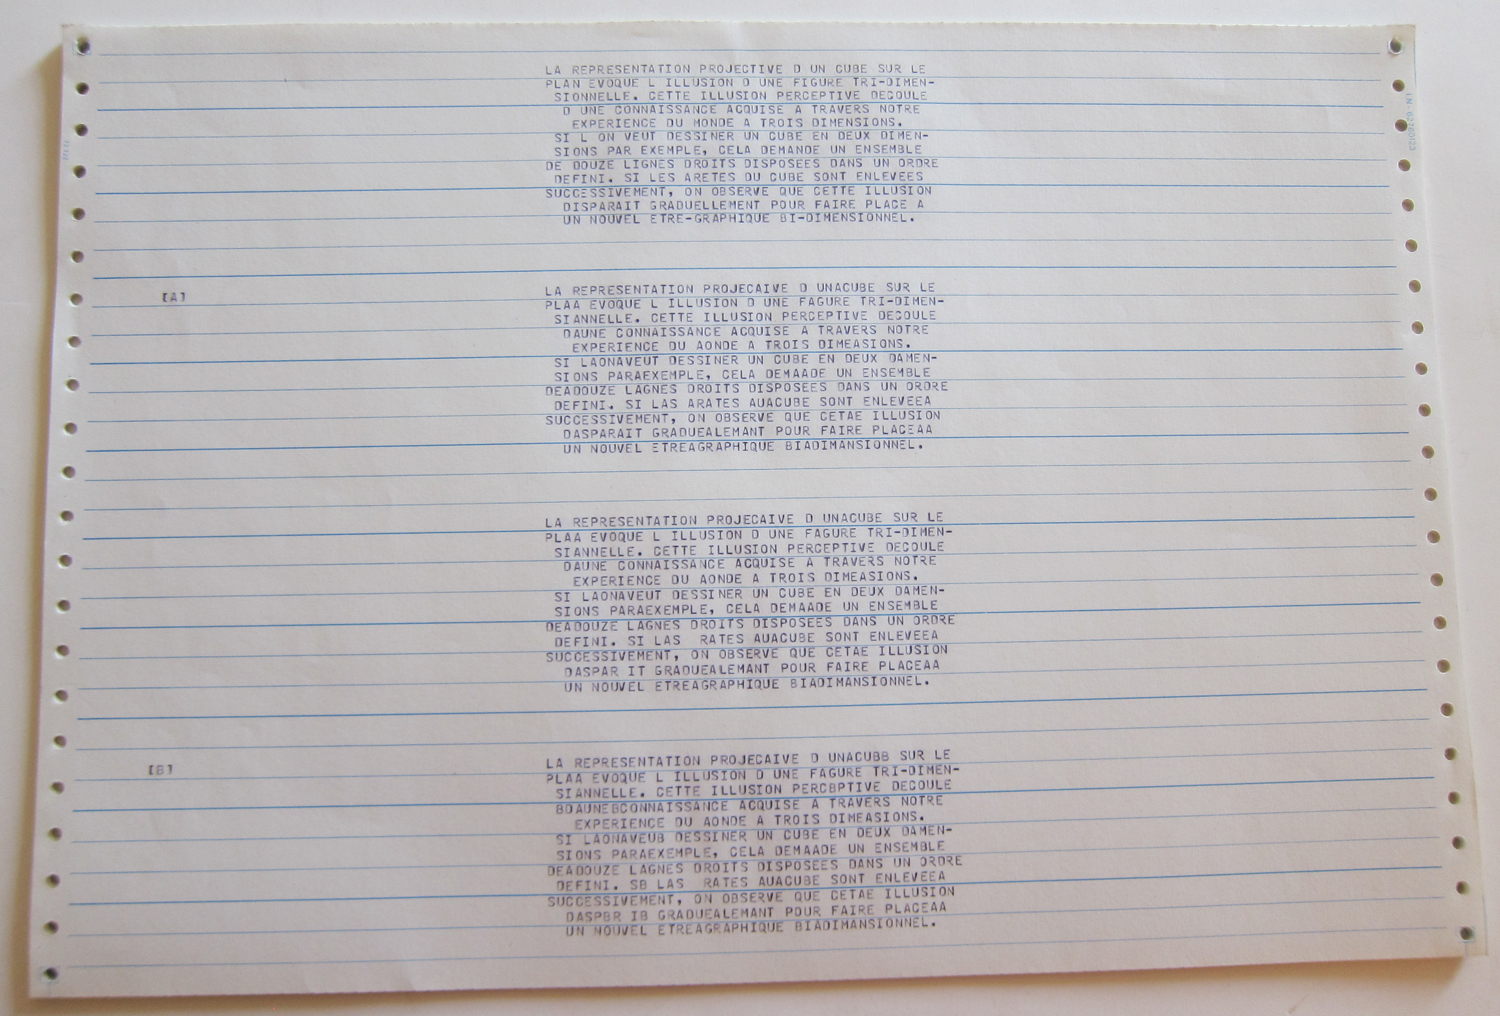 LA REPRESENTATION PROJECTIVE D UN CUBE SUR LE
PLAN EVOQUE L ILLUSION D UNE FIGURE TRI-DIMEN-
SIONNELLE. CETTE ILLUSION PERCEPTIVE DECOULE
D UNE CONNAISSANCE ACQUISE A TRAVERS NOTRE
EXPERIENCE DU MONDE A TROIS DIMENSIONS.
SI L ON VEUT DESSINER UN CUBE EN DEUX DIMEN-
SIONS PAR EXEMPLE, CELA DEMANDE UN ENSEMBLE
DE DOUZE LIGNES DROITS DISPOSEES DANS UN ORDRE
DEFINI. SI LES ARETES DU CUBE SONT ENLEVEES
SUCCESSIVEMENT, ON OBSERVE QUE CETTE ILLUSION
DISPARAIT GRADUELLEMENT POUR FAIRE PLACE A
UN NOUVEL ETRE-GRAPHIQUE BI-DIMENSIONNEL.
[A]
LA REPRESENTATION PROJECAIVE D UNACUBE SUR LE
PLAA EVOQUE L ILLUSION D UNE FAGURE TRI-DIMEN-
SIANNELLE. CETTE ILLUSION PERCEPTIVE DECOULE
DAUNE CONNAISSANCE ACQUISE A TRAVERS NOTRE
EXPERIENCE DU AONDE A TROIS DIMEASIONS.
SI LAONAVEUT DESSINER UN CUBE EN DEUX DAMEN-
SIONS PARAEXEMPLE, CELA DEMAADE UN ENSEMBLE
DEADOUZE LAGNES DROITS DISPOSEES DANS UN ORDRE
DEFINI. SI LAS ARATES AUACUBE SONT ENLEVEEA
SUCCESSIVEMENT, ON OBSERVE QUE CETAE ILLUSION
DASPARAIT GRADUEALEMANT POUR FAIRE PLACEAA
UN NOUVEL ETREAGRAPHIQUE BIADIMANSIONNEL.
LA REPRESENTATION PROJECAIVE D UNACUBE SUR LE
PLAA EVOQUE L ILLUSION D UNE FAGURE TRI-DIMEN-
SIANNELLE. CETTE ILLUSION PERCEPTIVE DECOULE
DAUNE CONNAISSANCE ACQUISE A TRAVERS NOTRE
EXPERIENCE DU AONDE A TROIS DIMEASIONS.
SI LAONAVEUT DESSINER UN CUBE EN DEUX DAMEN-
SIONS PARAEXEMPLE, CELA DEMAADE UN ENSEMBLE
DEADOUZE LAGNES DROITS DISPOSEES DANS UN ORDRE
DEFINI. SI LAS  RATES AUACUBE SONT ENLEVEEA
SUCCESSIVEMENT, ON OBSERVE QUE CETAE ILLUSION
DASPAR IT GRADUEALEMANT POUR FAIRE PLACEAA
UN NOUVEL ETREAGRAPHIQUE BIADIMANSIONNEL.
[B]
LA REPRESENTATION PROJECAIVE D UNACUBB SUR LE
PLAA EVOQUE L ILLUSION D UNE FAGURE TRI-DIMEN-
SIANNELLE. CETTE ILLUSION PERCBPTIVE DECOULE
BDAUNEBCONNAISSANCE ACQUISE A TRAVERS NOTRE
EXPERIENCE DU AONDE A TROIS DIMEASIONS.
SI LAONAVEUB DESSINER UN CUBE EN DEUX DAMEN-
SIONS PARAEXEMPLE, CELA DEMAADE UN ENSEMBLE
DEADOUZE LAGNES DROITS DISPOSEES DANS UN ORDRE
DEFINI. SB LAS  RATES AUACUBE SONT ENLEVEEA
SUCCESSIVEMENT, ON OBSERVE QUE CETAE ILLUSION
DASPBR IB GRADUEALEMANT POUR FAIRE PLACEAA
UN NOUVEL ETREAGRAPHIQUE BIADIMANSIONNEL.